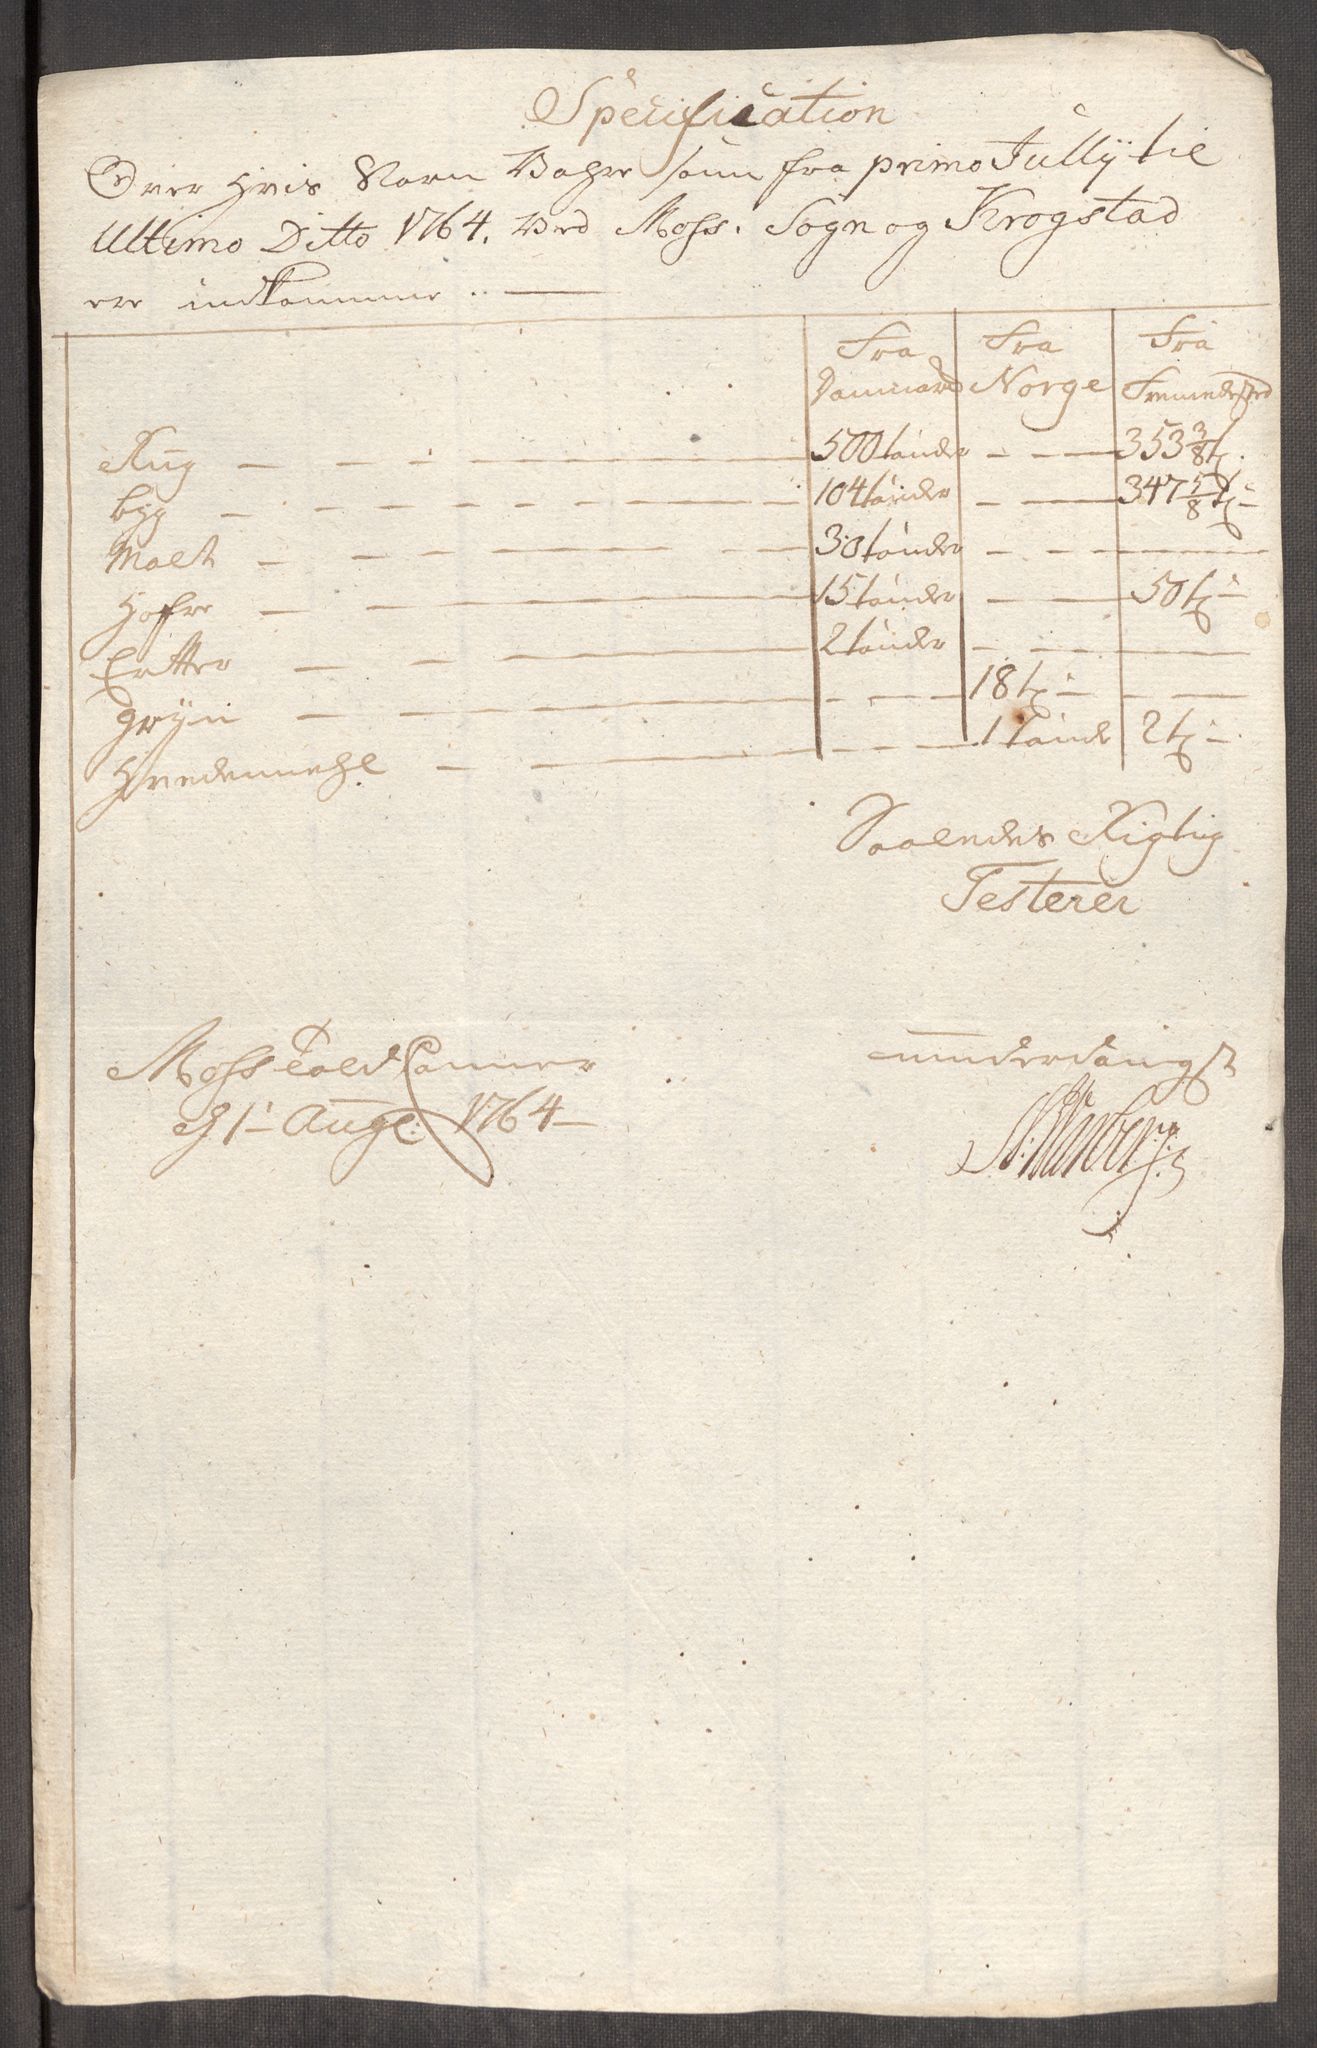 Specification
Over Hvis Korn Vahre som fra primo Jullÿ til
Ultimo Ditto 1764. Ved Moss. Sogn og Krogstad
ere indkomme.. —
Fra Danmark Fra Norge Fra Fremmedsted
Rug — 500 tönder — 353 3/8 t.
byg — 104 tönder — 347 5/8 t —
Malt — 30 tönder — —
Hafre — 15 tönder — 50 t —
Ertter — 2 tönder — —
Grÿn — — 18 t — —
Hvedemehl — — 1 tönde 2 t —
Saaledes Rigtig
Testerer
Moss Told Camer underdanigst
d 1 Aug: 1764